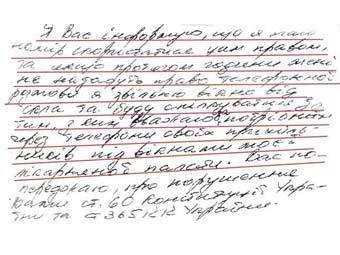 Я Вас інформую, що я маю
намір скористатися цим правом,
та якщо протягом години мені
не нададуть право телефонної
розмови я звільню вікно від
скла та буду спілкуватися
тим, з ким вважаю потрібним
через телефони своїх прихиль-
ників під вікнами моєї
лікарняної палати. Вас по-
переджаю, про порушення
Вами ст. 60 Конституції Укра-
їни та ст 365 КК України.